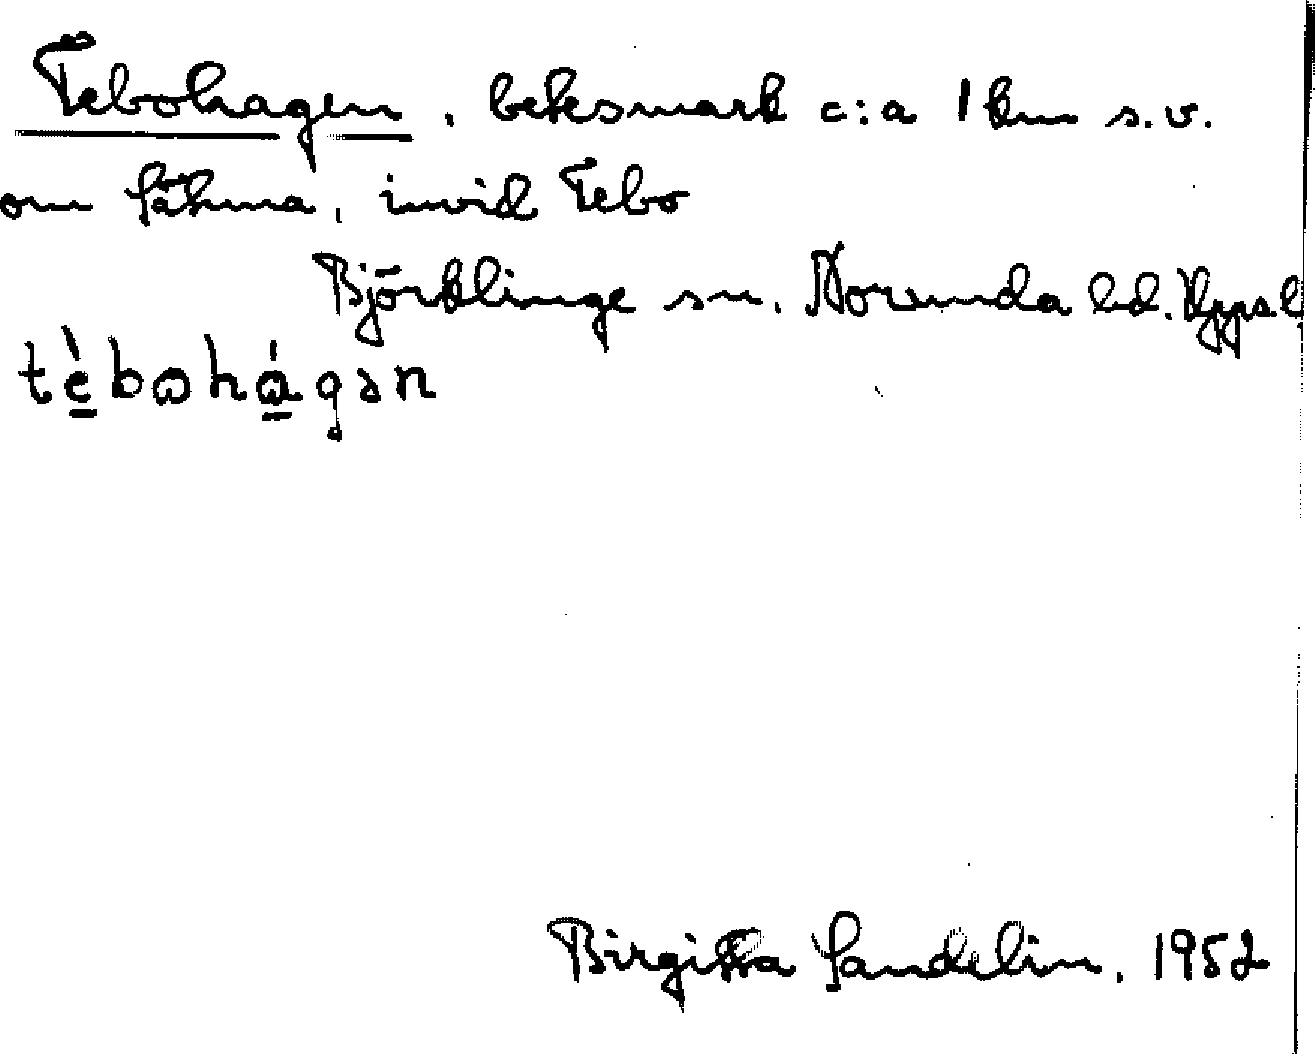 Tebohagen, betesmark c:a 1 km s.v.
om Såhma, invid Tebo
Björklinge sn. Norunda hd. Uppsl
tèbωhágən
Birgitta Sandelin, 1952